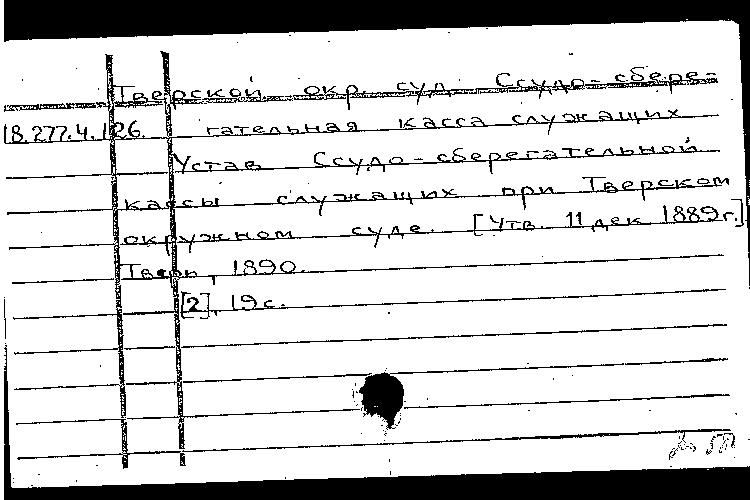 Тверской окр. суд. Ссудо-сбере-
18.277.4.126. гательная касса служащих
Устав Ссудо-сберегательной
кассы служащих при Тверском
окружном суде. [Утв. 11 дек 1889г.]
Тверь, 1890.
[2], 19с.